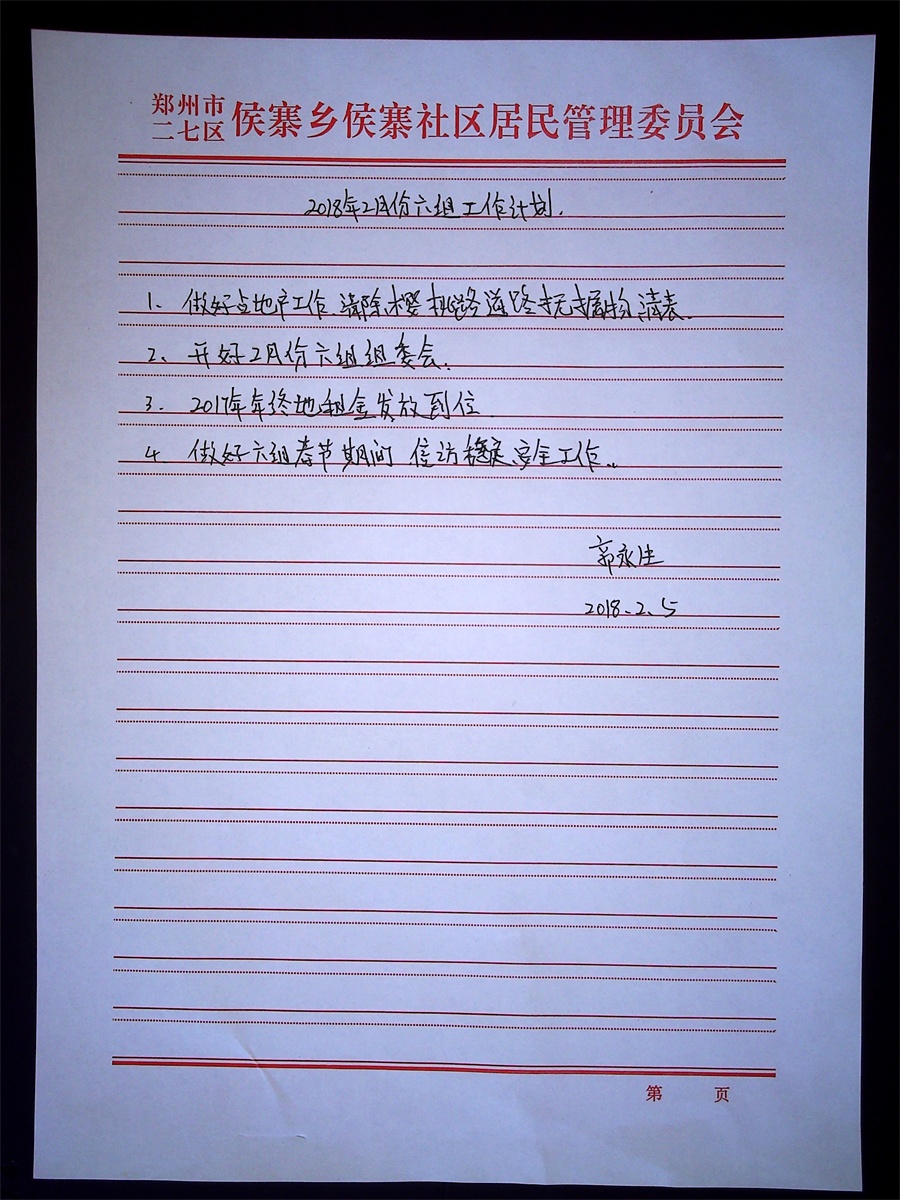 郑州市
二七区 侯寨乡侯寨社区居民管理委员会
2018年2月份六组工作计划.
1. 做好占地户工作、清除樱桃路道路 清表.
2、开好2月份六组组委会.
3. 2017年年终地租金发放到位.
4. 做好六组春节期间 信访稳定安全工作..
郭永生
2018.2.5
第 页